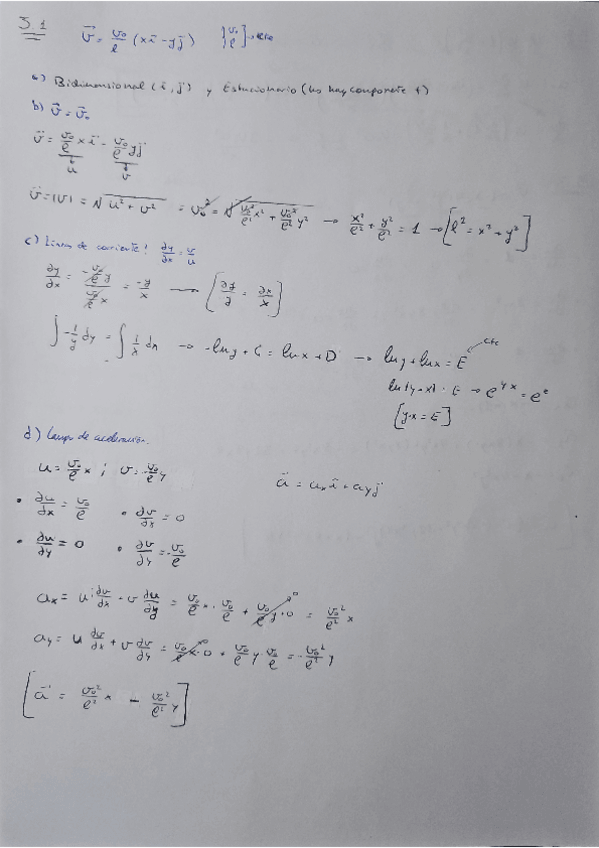 3.1
v⃗ = v₀/ℓ (x i⃗ - y j⃗) } v₀ ℓ ] → cte
a) Bidimensional (i⃗, j⃗) y Estacionario (No hay componente t)
b) v⃗ = v⃗₀
v⃗ = v₀/ℓ x i⃗ - v₀/ℓ y j⃗
u v
v⃗ = |v| = √(u² + v²) = v₀² = √(v₀²/ℓ² x² + v₀²/ℓ² y²) → x²/ℓ² + y²/ℓ² = 1 → [ℓ² = x² + y²]
c) Líneas de corriente: ∂y/∂x = v/u
∂y/∂x = (-v₀/ℓ y)/(v₀/ℓ x) = -y/x → [∂y/y = ∂x/x]
∫ -1/y dy = ∫ 1/x dx → -ln y + C = ln x + D → ln y + ln x = E cte
ln(y·x) = E → e^(yx) = e^e
[y·x = E]
d) Campo de aceleración.
u = v₀/ℓ x ; v = -v₀/ℓ y a⃗ = aₓ i⃗ + a_y j⃗
• ∂u/∂x = v₀/ℓ • ∂v/∂x = 0
• ∂u/∂y = 0 • ∂v/∂y = -v₀/ℓ
aₓ = u · ∂u/∂x + v ∂u/∂y = v₀/ℓ x · v₀/ℓ + v₀/ℓ y · 0 = v₀²/ℓ² x
a_y = u ∂v/∂x + v ∂v/∂y = v₀/ℓ x · 0 + v₀/ℓ y · v₀/ℓ = -v₀²/ℓ² y
[a⃗ = v₀²/ℓ² x - v₀²/ℓ² y]